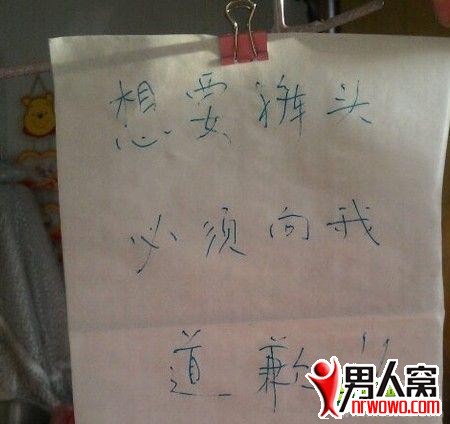 想要裤头
必须向我
道歉!!
男人窝
nrwowo.com